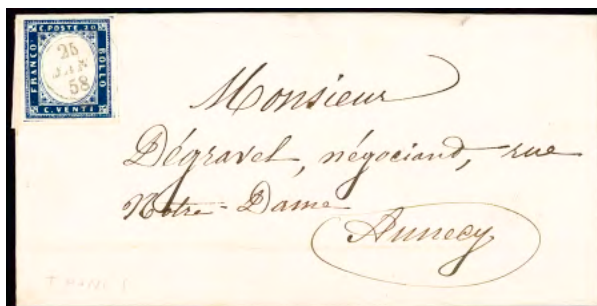 C. POSTE 20
FRANCO
BOLLO
25
JAN
58
C. VENTI
Monsieur
Dégravel, négociand, rue
Notre-Dame
Annecy